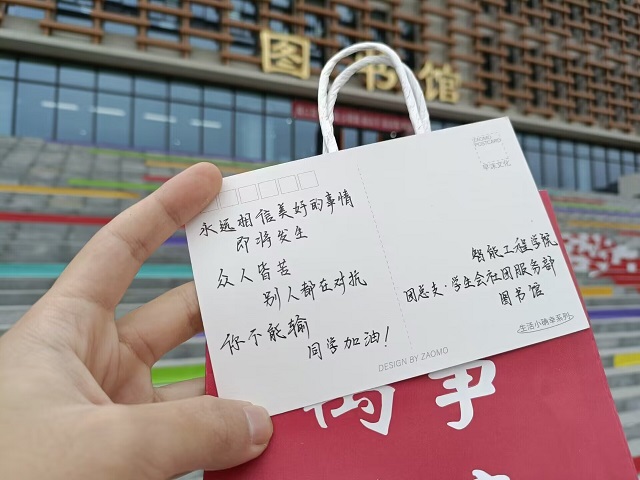 图书馆
ZAOMO
POSTCARD
早沫文化
永远相信美好的事情
即将发生
众人皆苦
别人都在对抗
你不能输
同学加油！
智能工程学院
团总支·学生会社团服务部
图书馆
生活小确幸系列
DESIGN BY ZAOMO
万事